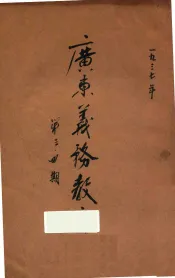 一九三六年
廣東義務教
第三四期